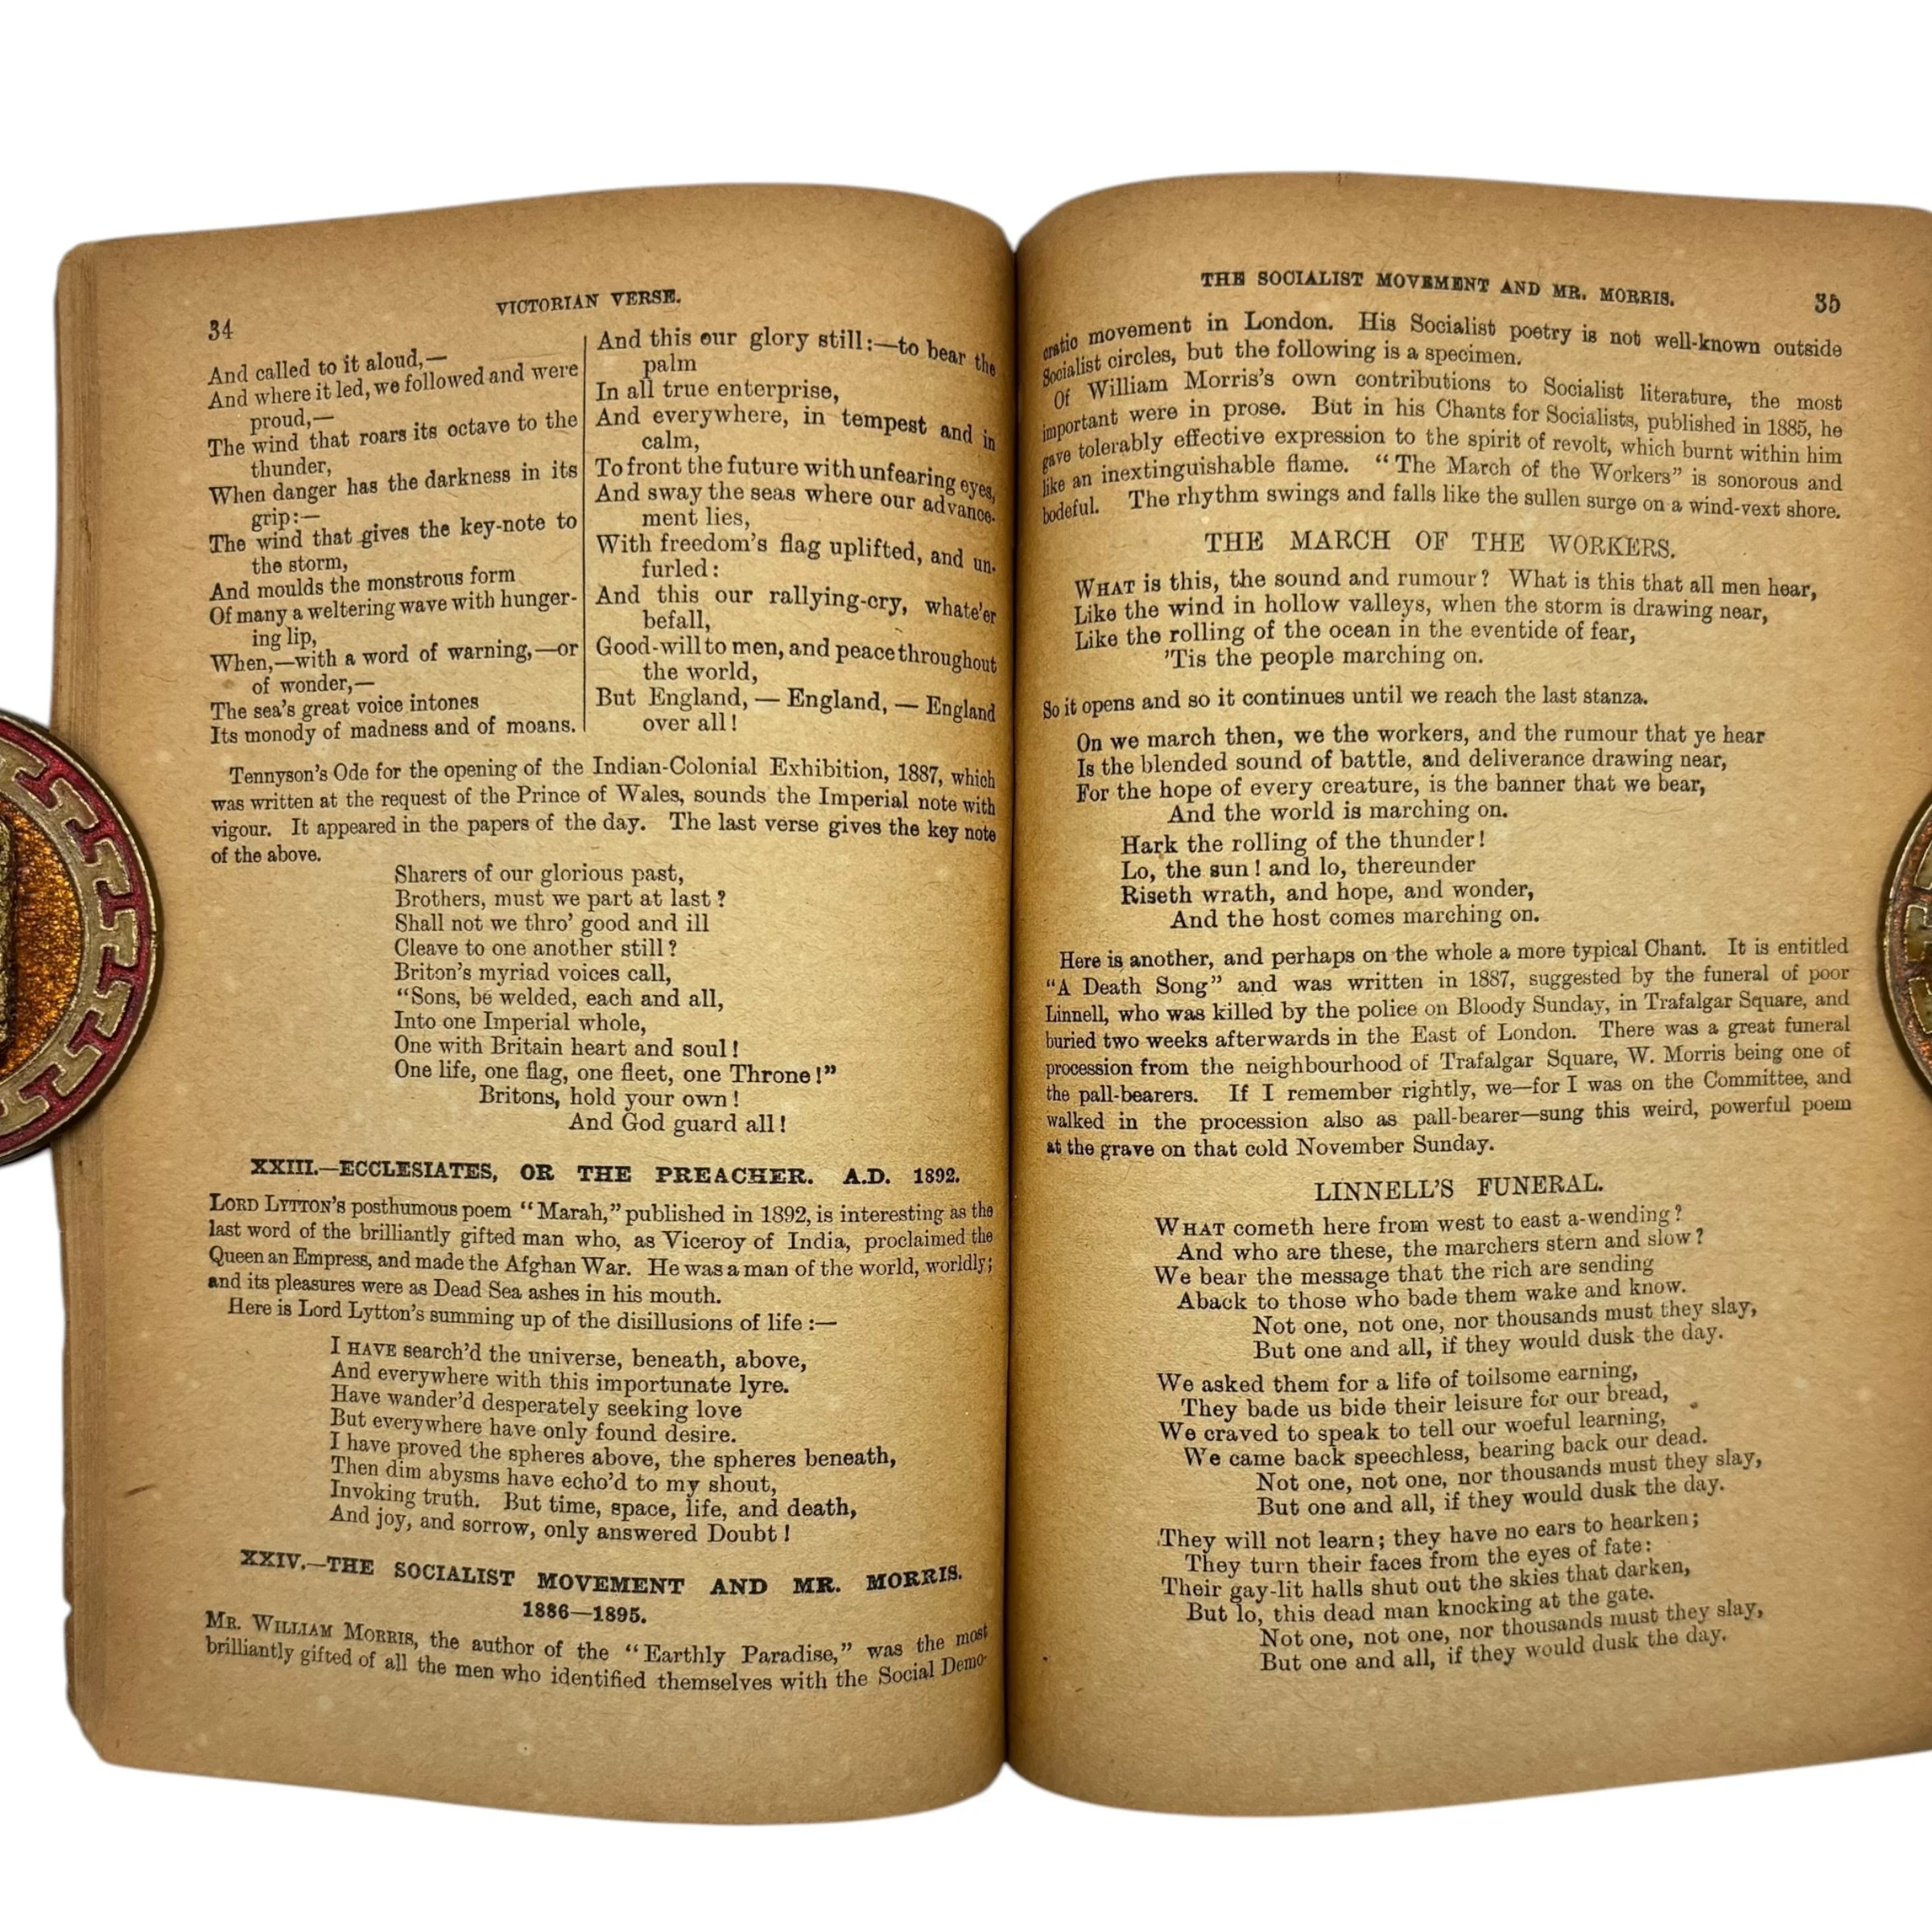 34
VICTORIAN VERSE.
And called to it aloud,—
And where it led, we followed and were
proud,—
The wind that roars its octave to the
thunder,
When danger has the darkness in its
grip:—
The wind that gives the key-note to
the storm,
And moulds the monstrous form
Of many a weltering wave with hunger-
ing lip,
When,—with a word of warning,—or
of wonder,—
The sea's great voice intones
Its monody of madness and of moans.
And this our glory still:—to bear the
palm
In all true enterprise,
And everywhere, in tempest and in
calm,
To front the future with unfearing eyes,
And sway the seas where our advance-
ment lies,
With freedom's flag uplifted, and un-
furled:
And this our rallying-cry, whate'er
befall,
Good-will to men, and peace throughout
the world,
But England, — England, — England
over all!
Tennyson's Ode for the opening of the Indian-Colonial Exhibition, 1887, which
was written at the request of the Prince of Wales, sounds the Imperial note with
vigour. It appeared in the papers of the day. The last verse gives the key note
of the above.
Sharers of our glorious past,
Brothers, must we part at last?
Shall not we thro' good and ill
Cleave to one another still?
Briton's myriad voices call,
"Sons, be welded, each and all,
Into one Imperial whole,
One with Britain heart and soul!
One life, one flag, one fleet, one Throne!"
Britons, hold your own!
And God guard all!
XXIII.—ECCLESIATES, OR THE PREACHER. A.D. 1892.
LORD LYTTON'S posthumous poem "Marah," published in 1892, is interesting as the
last word of the brilliantly gifted man who, as Viceroy of India, proclaimed the
Queen an Empress, and made the Afghan War. He was a man of the world, worldly;
and its pleasures were as Dead Sea ashes in his mouth.
Here is Lord Lytton's summing up of the disillusions of life:—
I HAVE search'd the universe, beneath, above,
And everywhere with this importunate lyre.
Have wander'd desperately seeking love
But everywhere have only found desire.
I have proved the spheres above, the spheres beneath,
Then dim abysms have echo'd to my shout,
Invoking truth. But time, space, life, and death,
And joy, and sorrow, only answered Doubt!
XXIV.—THE SOCIALIST MOVEMENT AND MR. MORRIS.
1886—1895.
MR. WILLIAM MORRIS, the author of the "Earthly Paradise," was the most
brilliantly gifted of all the men who identified themselves with the Social Demo-
THE SOCIALIST MOVEMENT AND MR. MORRIS.
35
cratic movement in London. His Socialist poetry is not well-known outside
Socialist circles, but the following is a specimen.
Of William Morris's own contributions to Socialist literature, the most
important were in prose. But in his Chants for Socialists, published in 1885, he
gave tolerably effective expression to the spirit of revolt, which burnt within him
like an inextinguishable flame. "The March of the Workers" is sonorous and
bodeful. The rhythm swings and falls like the sullen surge on a wind-vext shore.
THE MARCH OF THE WORKERS.
WHAT is this, the sound and rumour? What is this that all men hear,
Like the wind in hollow valleys, when the storm is drawing near,
Like the rolling of the ocean in the eventide of fear,
'Tis the people marching on.
So it opens and so it continues until we reach the last stanza.
On we march then, we the workers, and the rumour that ye hear
Is the blended sound of battle, and deliverance drawing near,
For the hope of every creature, is the banner that we bear,
And the world is marching on.
Hark the rolling of the thunder!
Lo, the sun! and lo, thereunder
Riseth wrath, and hope, and wonder,
And the host comes marching on.
Here is another, and perhaps on the whole a more typical Chant. It is entitled
"A Death Song" and was written in 1887, suggested by the funeral of poor
Linnell, who was killed by the police on Bloody Sunday, in Trafalgar Square, and
buried two weeks afterwards in the East of London. There was a great funeral
procession from the neighbourhood of Trafalgar Square, W. Morris being one of
the pall-bearers. If I remember rightly, we—for I was on the Committee, and
walked in the procession also as pall-bearer—sung this weird, powerful poem
at the grave on that cold November Sunday.
LINNELL'S FUNERAL.
WHAT cometh here from west to east a-wending?
And who are these, the marchers stern and slow?
We bear the message that the rich are sending
Aback to those who bade them wake and know.
Not one, not one, nor thousands must they slay,
But one and all, if they would dusk the day.
We asked them for a life of toilsome earning,
They bade us bide their leisure for our bread,
We craved to speak to tell our woeful learning,
We came back speechless, bearing back our dead.
Not one, not one, nor thousands must they slay,
But one and all, if they would dusk the day.
They will not learn; they have no ears to hearken;
They turn their faces from the eyes of fate:
Their gay-lit halls shut out the skies that darken,
But lo, this dead man knocking at the gate.
Not one, not one, nor thousands must they slay,
But one and all, if they would dusk the day.